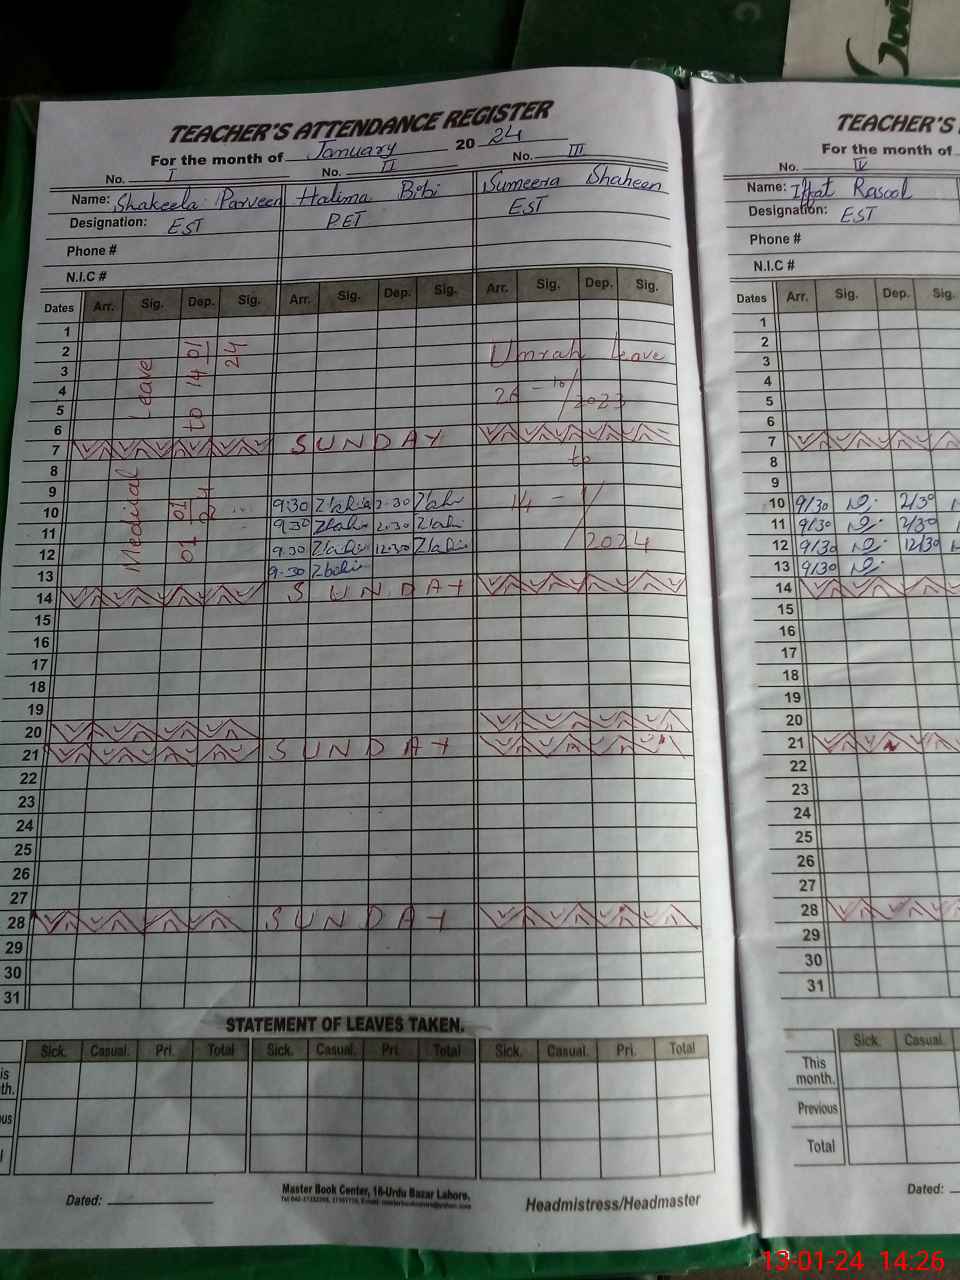 TEACHER'S ATTENDANCE REGISTER
For the month of January 20 24
No. I No. II No. III
Name: Shakeela Parveen Halima Bibi Sumeera Shaheen
Designation: EST PET EST
Phone #
N.I.C #
Dates Arr. Sig. Dep. Sig. Arr. Sig. Dep. Sig. Arr. Sig. Dep. Sig.
1
2 Umrah Leave
3
4 26 - 10/2023
5
6
7 SUNDAY
to
8
9
10 9:30 2:30 14 - 1/2024
11 9:30 2:30
12 9:30 12:30
13 9:30
14 SUNDAY
Medical Leave
01 01 24 to 14 01 24
15
16
17
18
19
20
21 SUNDAY
22
23
24
25
26
27
28 SUNDAY
29
30
31
STATEMENT OF LEAVES TAKEN.
Sick. Casual. Pri. Total Sick. Casual. Pri. Total Sick. Casual. Pri. Total
Dated:
Master Book Center, 16-Urdu Bazar Lahore.
Headmistress/Headmaster
TEACHER'S
For the month of
No. IV
Name: Iffat Rasool
Designation: EST
Phone #
N.I.C #
Dates Arr. Sig. Dep. Sig.
1
2
3
4
5
6
7
8
9
10 9/30 2/30
11 9/30 2/30
12 9/30 12/30
13 9/30
14
15
16
17
18
19
20
21
22
23
24
25
26
27
28
29
30
31
Sick. Casual.
This month.
Previous
Total
Dated:
13-01-24 14:26